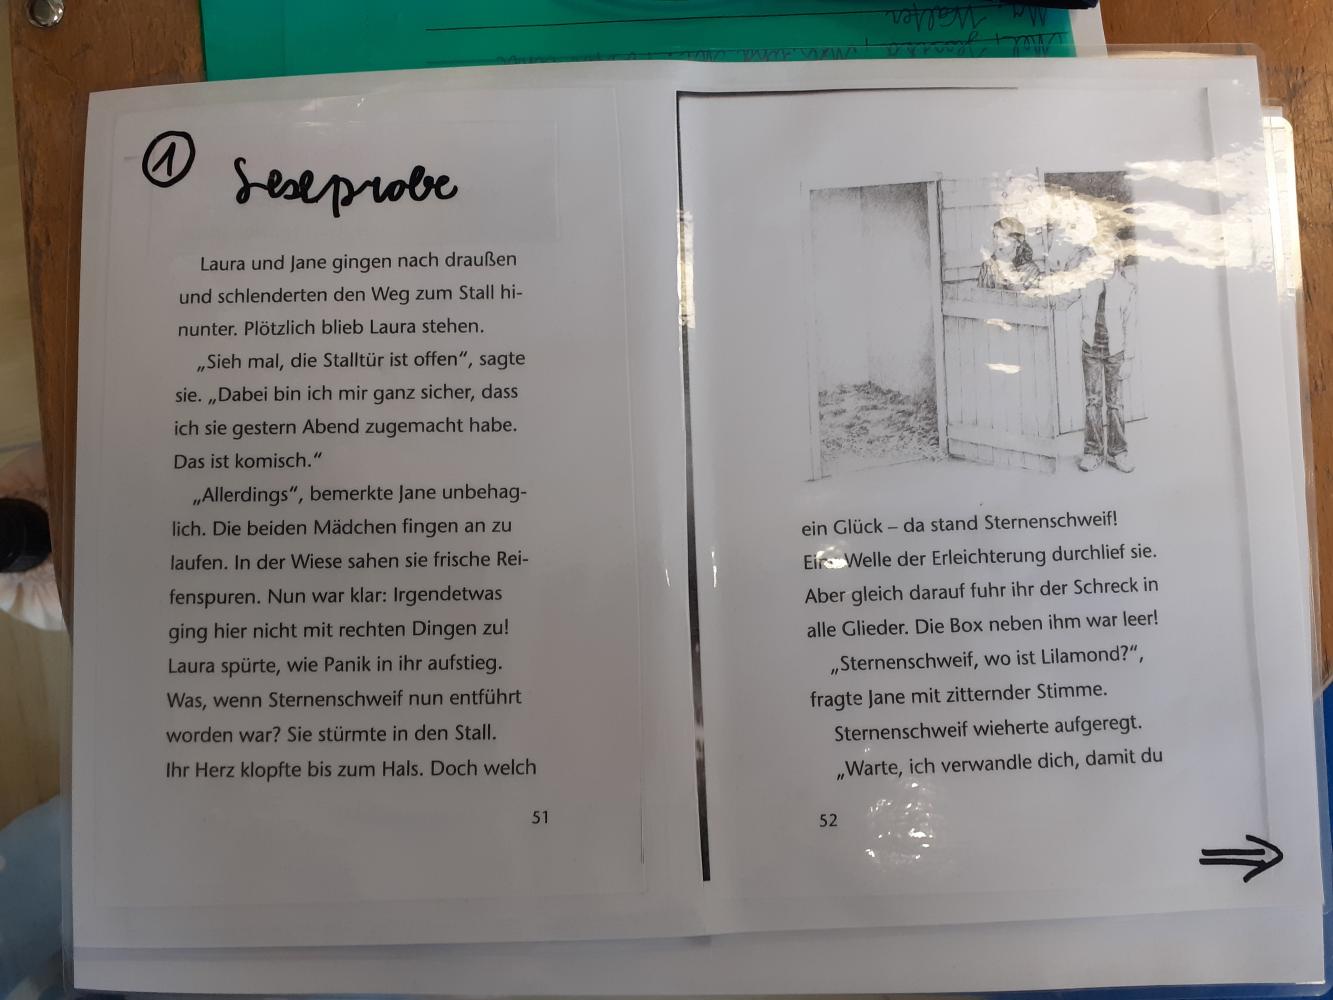 Walter
1
Leseprobe
Laura und Jane gingen nach draußen
und schlenderten den Weg zum Stall hi-
nunter. Plötzlich blieb Laura stehen.
„Sieh mal, die Stalltür ist offen“, sagte
sie. „Dabei bin ich mir ganz sicher, dass
ich sie gestern Abend zugemacht habe.
Das ist komisch.“
„Allerdings“, bemerkte Jane unbehag-
lich. Die beiden Mädchen fingen an zu
laufen. In der Wiese sahen sie frische Rei-
fenspuren. Nun war klar: Irgendetwas
ging hier nicht mit rechten Dingen zu!
Laura spürte, wie Panik in ihr aufstieg.
Was, wenn Sternenschweif nun entführt
worden war? Sie stürmte in den Stall.
Ihr Herz klopfte bis zum Hals. Doch welch
51
ein Glück – da stand Sternenschweif!
Eine Welle der Erleichterung durchlief sie.
Aber gleich darauf fuhr ihr der Schreck in
alle Glieder. Die Box neben ihm war leer!
„Sternenschweif, wo ist Lilamond?“,
fragte Jane mit zitternder Stimme.
Sternenschweif wieherte aufgeregt.
„Warte, ich verwandle dich, damit du
52